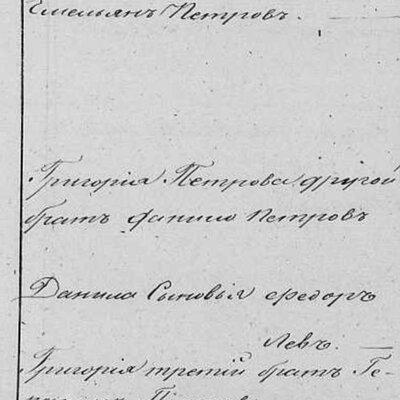 Емельянъ Петровъ.
Григорія Петрова другой
братъ данило Петровъ
Данила Сыновья Федоръ
Левъ.
Григорія третій братъ Ге-